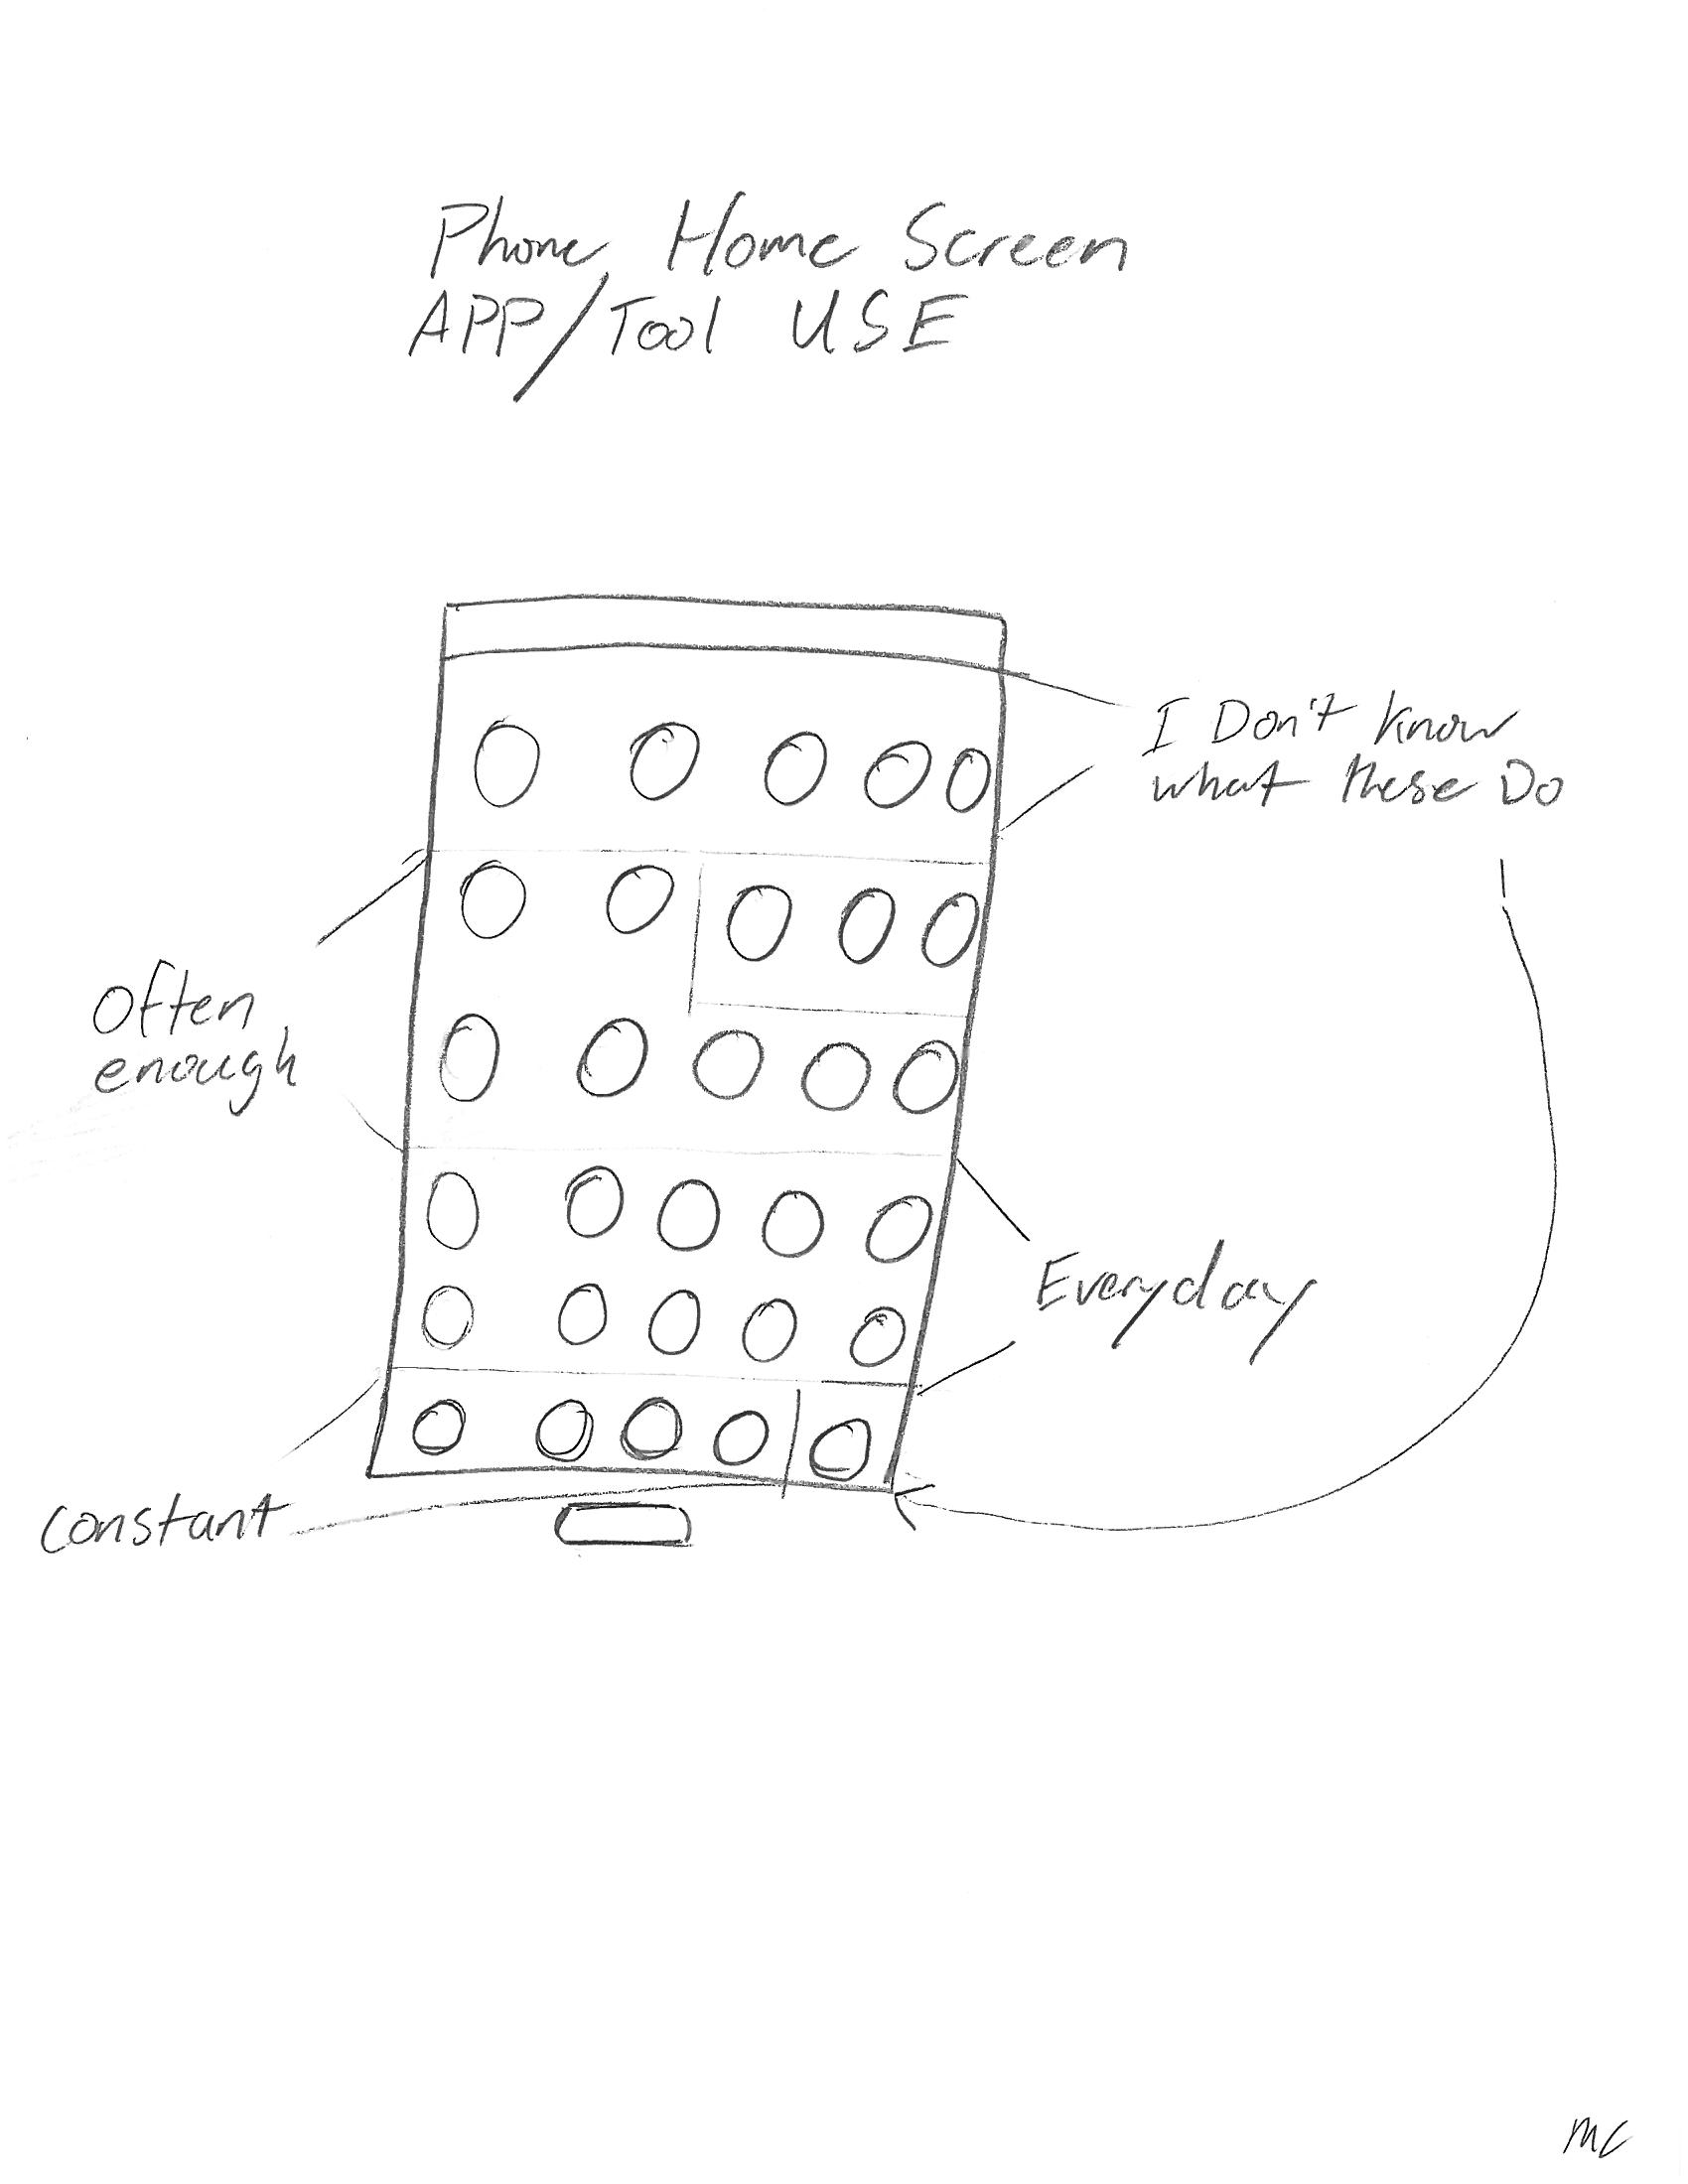 Phone Home Screen
APP/Tool USE
I Don't know
what these Do
Often
enough
Everyday
Constant
MC